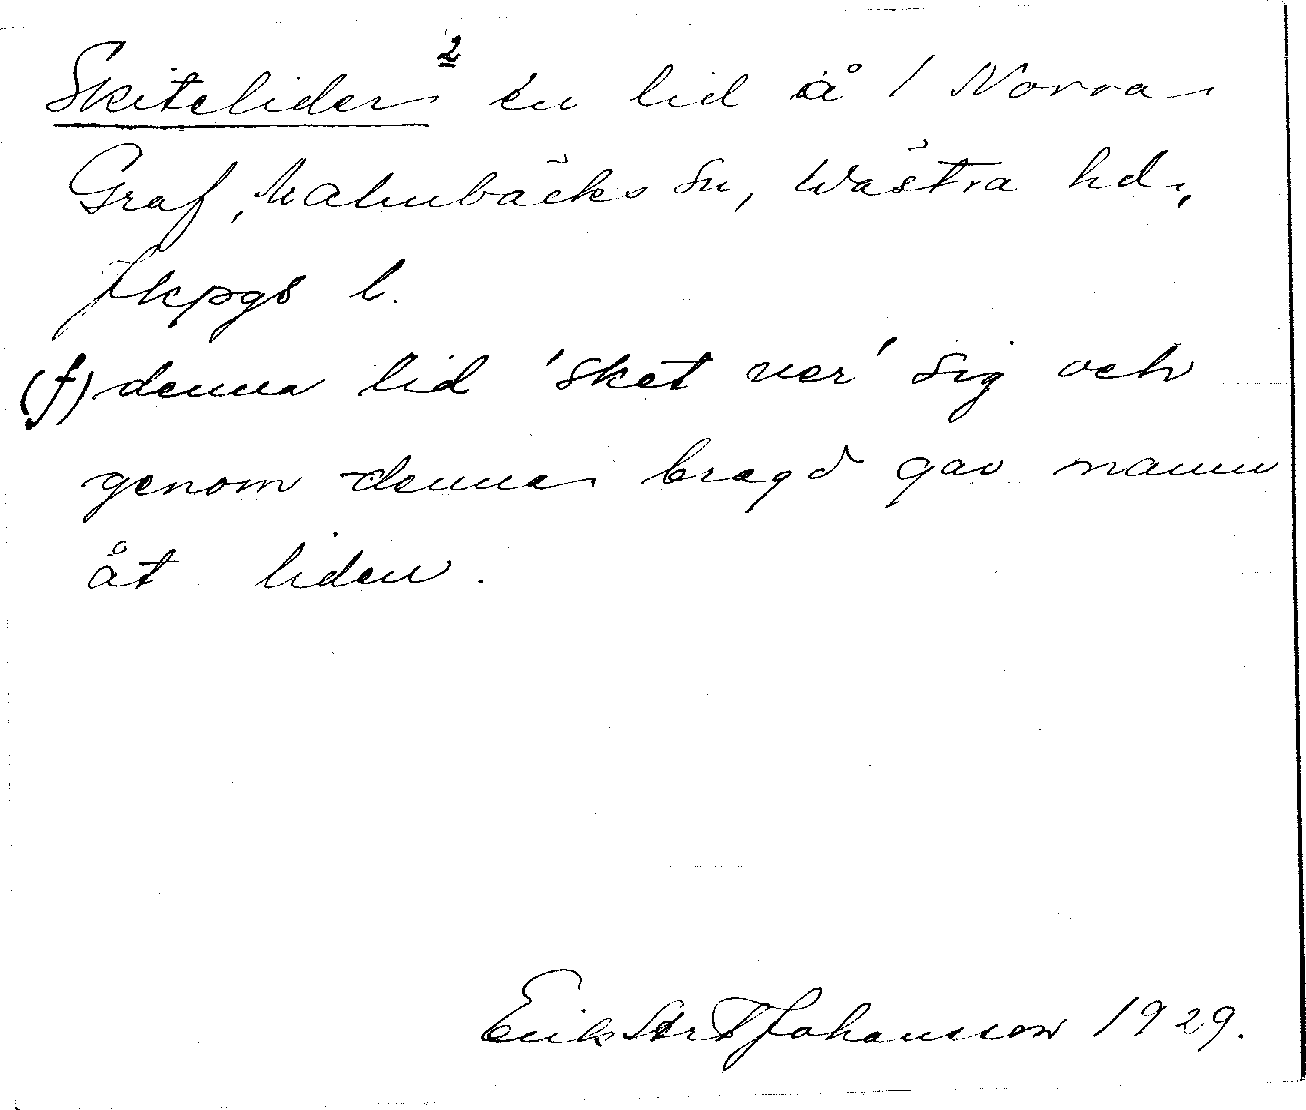 Skiteliden 2 en lid å 1 Norra
Graf, Malmbäcks sn, Wästra hd.,
Jkpgs l.
(f) denna lid 'sket ner' sig och
genom denna bragd gav namn
åt liden.
Erik Johansson 1929.